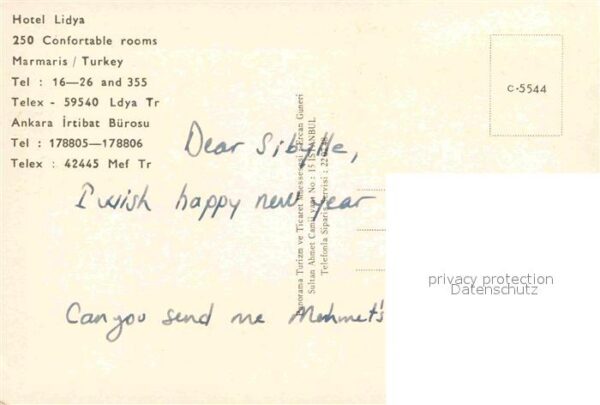 Hotel Lidya
250 Confortable rooms
Marmaris / Turkey
Tel : 16—26 and 355
Telex - 59540 Ldya Tr
Ankara İrtibat Bürosu
Tel : 178805—178806
Telex : 42445 Mef Tr
C-5544
Dear Sibylle,
I wish happy new year
Can you send me Mehmet's
Panorama Turizm ve Ticaret Müessesesi Ercan Guneri
Sultan Ahmet Camii yanı No : 15 İSTANBUL
Telefonla Sipariş Servisi : 22
privacy protection
Datenschutz